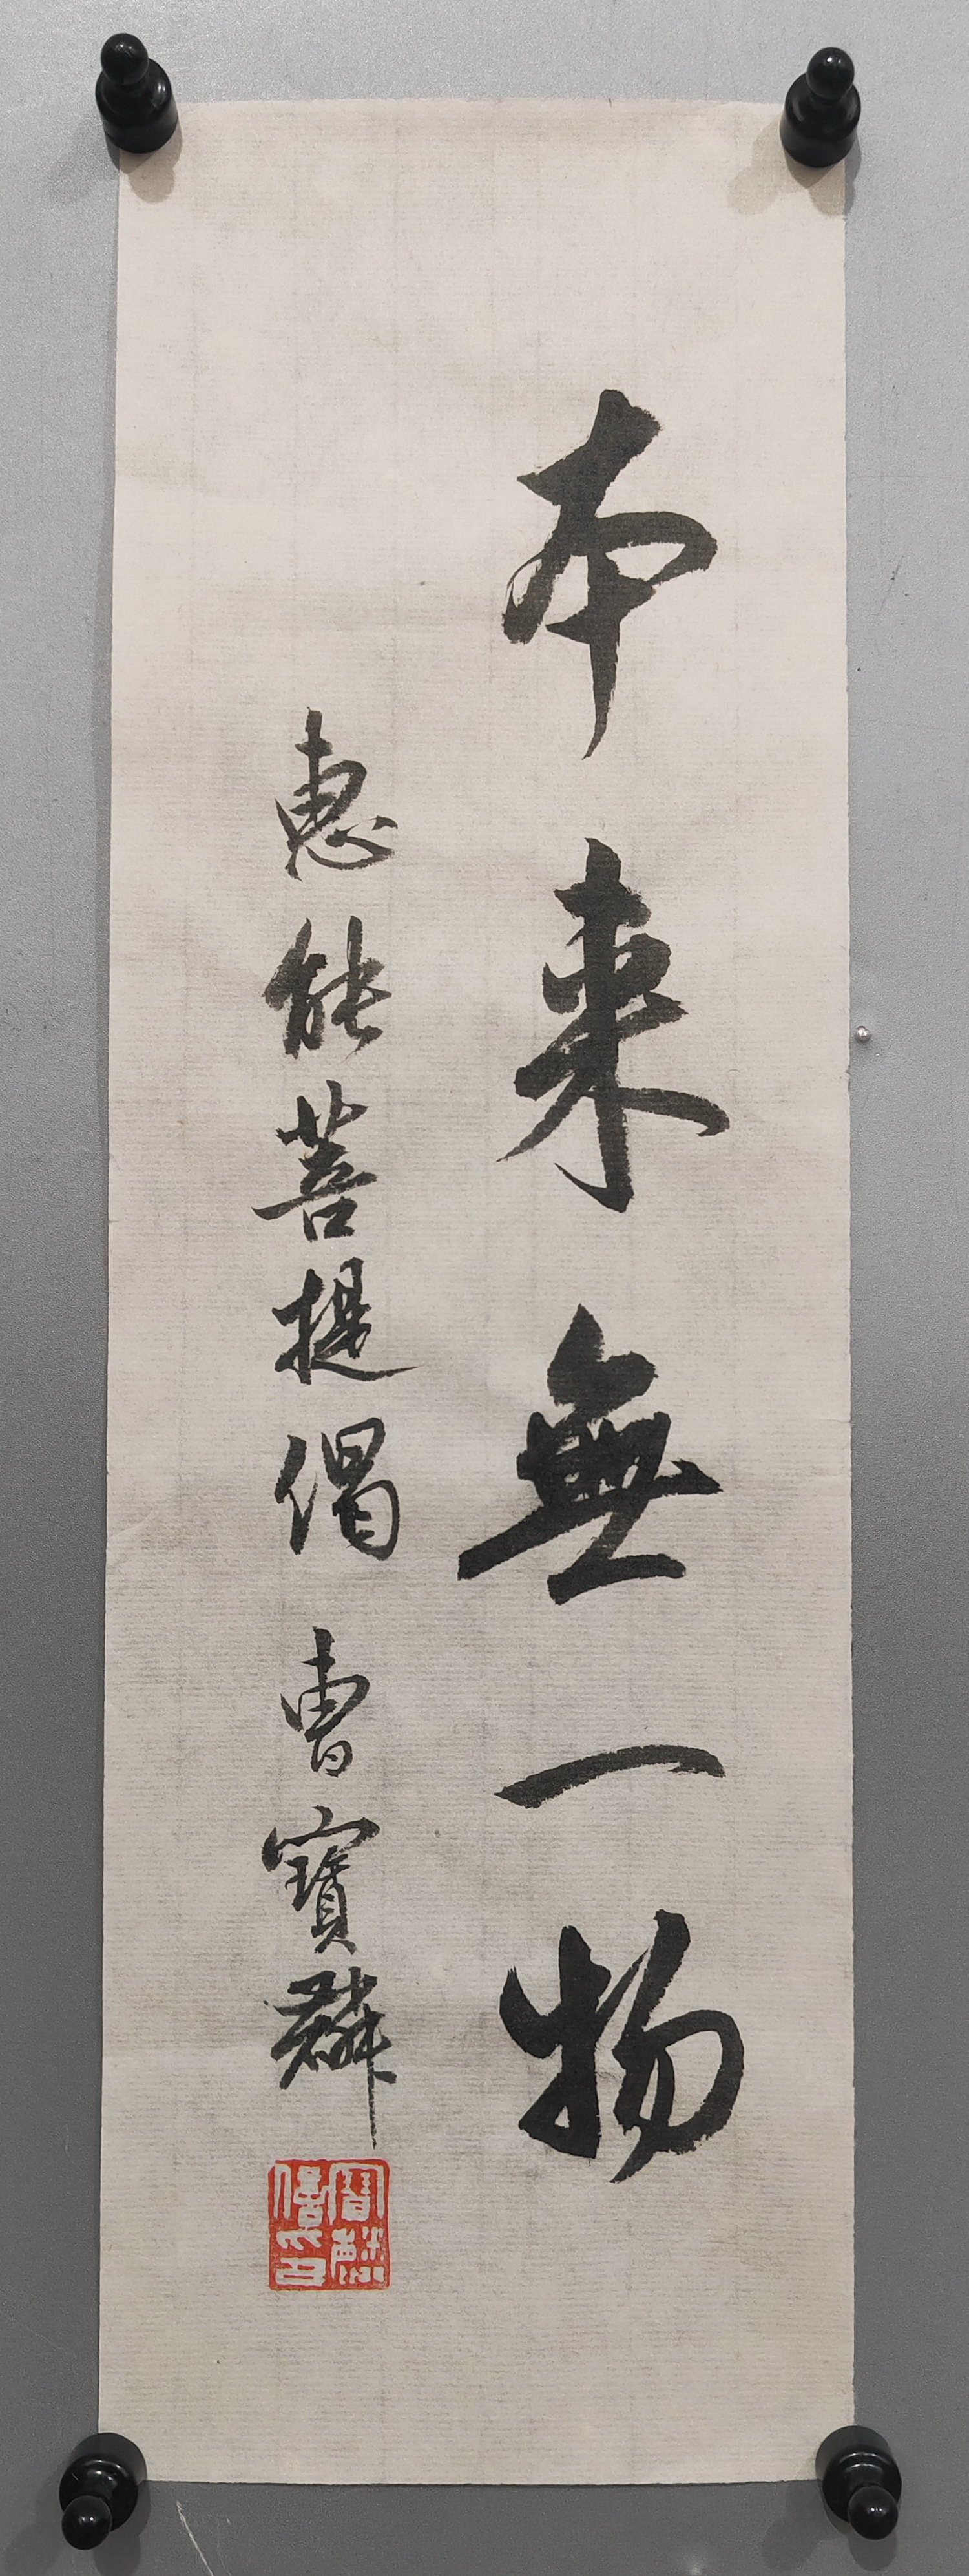 本來無一物
惠能菩提偈 曹寶麟